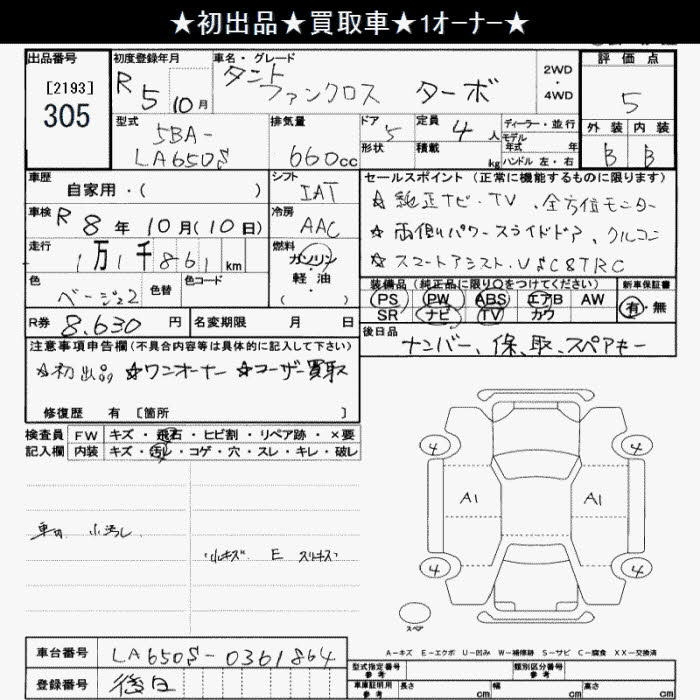 ★初出品★買取車★1ｵｰﾅｰ★
出品番号
[2193]
305
初度登録年月
R 5 10月
車名・グレード
タント ファンクロス ターボ
2WD
・
4WD
評価点
5
外装 内装
B B
型式
5BA-
LA650S
排気量
660cc
ドア
5
定員
4人
形状
積載
kg
ディーラー・並行
モデル
年式 年
ハンドル 左・右
車歴
自家用・( )
シフト
IAT
セールスポイント (正常に機能するものに限ります)
★ 純正ナビ・TV、全方位モニター
★ 両側パワースライドドア、クルコン
★ スマートアシスト・VSC&TRC
車検 R 8年 10月(10日)
冷房
AAC
走行
1万1千861km
燃料
ガソリン
・
軽油
( )
色
ベージュ2
色替
色コード
装備品 (純正品に限り○をつけてください)
PS PW ABS エアB AW
SR ナビ TV カワ
新車保証書
有・無
R券 8,630円
名変期限 月 日
後日品
ナンバー、保、取、スペアキー
注意事項申告欄(不具合内容等は具体的に記入して下さい)
★初出品 ★ワンオーナー ★ユーザー買取
修復歴 有 [箇所 ]
検査員
記入欄
FW キズ・飛石・ヒビ割・リペア跡・×要
内装 キズ・汚レ・コゲ・穴・スレ・キレ・破レ
車内 小汚レ
小キズ E スリキズ
4 4
A1 A1
4 4
スペア
A－キズ E－エクボ U－凹み W－補修跡 S－サビ C－腐食 XX－交換済
車台番号 LA650S-0361864
登録番号 後日
型式指定番号
参考
類別区分番号
参考
車庫証明用
参考
長さ cm 幅 cm 高さ cm